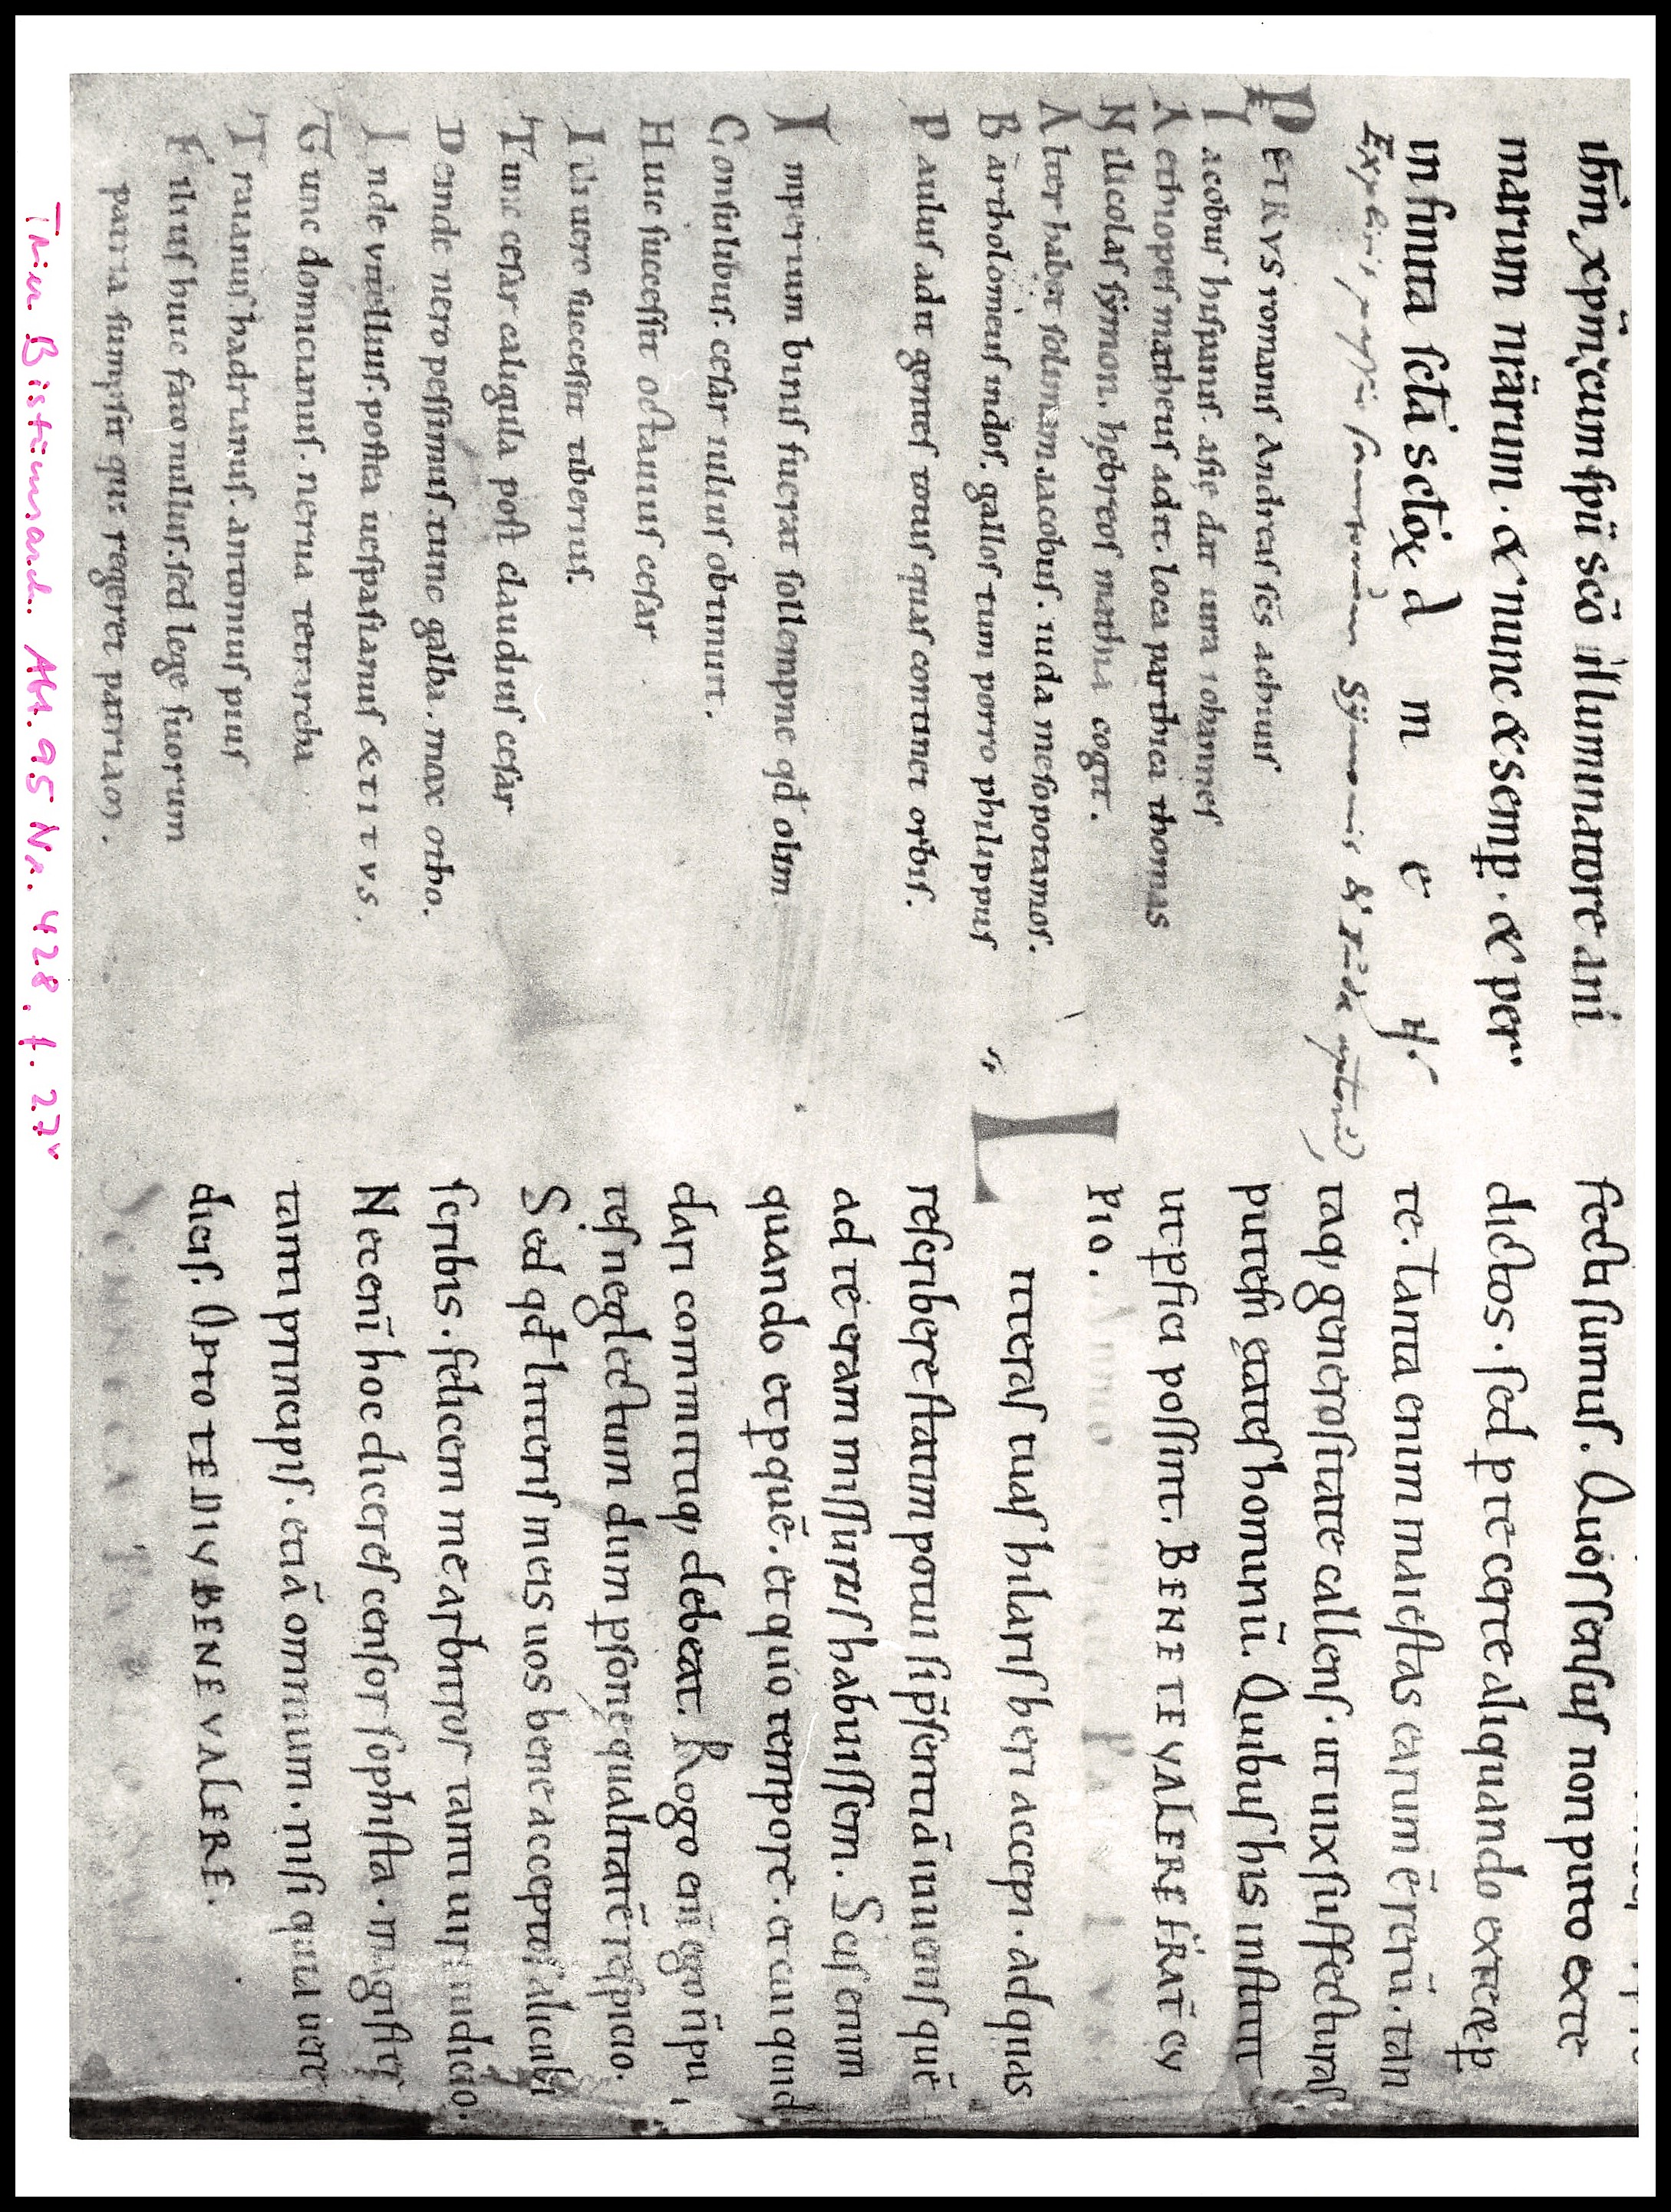 ihm̄ xpm̄. cum spū scō illuminatore ani
marum nr̄arum. & nunc & semp. & per
infinita scła sctoꝝ. d m e ꝗ.
Explicit passio sanctorum Sÿmonis & Iude aptorū
PETRVS romanis Andreas sc̄s achiuis
Iacobus hispanis. asię dat iura iohannes
Aethiopes matheus adit. loca parthica thomas
Nilicolas sẏmon. hębreos mathia cogit.
Alter habet solimam iacobus. iuda mesopotamos.
Bartholomeus indos. gallos tum porro philippus
Paulus adit gentes totus quas continet orbis.
Imperium binis fuerat sollempne qđ olim
Consulibus. cesar iulius obtinuit.
Huic successit octauius cesar
Iuero successit tiberius.
Tunc cesar caligula post claudius cesar
Deinde nero pessimus. tunc galba. mox otho.
Inde vitellius. postea uespasianus & TITVS.
Tunc domicianus. nerua tetrarcha
Traianus. hadrianus. antonius pius
Filius huic fato nullus. sed lege suorum
patria sumpsit qui regeret patriam.
fectu sumus. Quos sensus non puto ex te
dictos. sed p te certe aliquando ex te & p
te. Tanta enim maiestas earum ē rerū. tan
taq; generositate callens. ut uix suffecturas
putes in ętates hominū. Quibus his instrui
inepsici possint. BENE TE VALERE FRATER CV
PIO. Anno PAVLVS
Litteras tuas hilaris heri accepi. ad quas
rescribere statim potui si p̄sentiā iuuenis quē
ad te eram missurus habuissem. Scis enim
quando et p quē. et quo tempore. et cui quid
dari committiq; debeat. Rogo eni ego n̄ pu
tes neglectum dum psonę qualitatē respicio.
Sed qđ litteris meis uos bene acceptos alicubi
scribis. felicem me arbitror tanti uiri iudicio.
Nec eni hoc diceres censor sophista. magister
tanti principis. etiā omnium. nisi quia uere
dicis. Opto te DIV BENE VALERE.
SENECA
Trier Bistumsarch. Abt. 95 Nr. 428, f. 27v